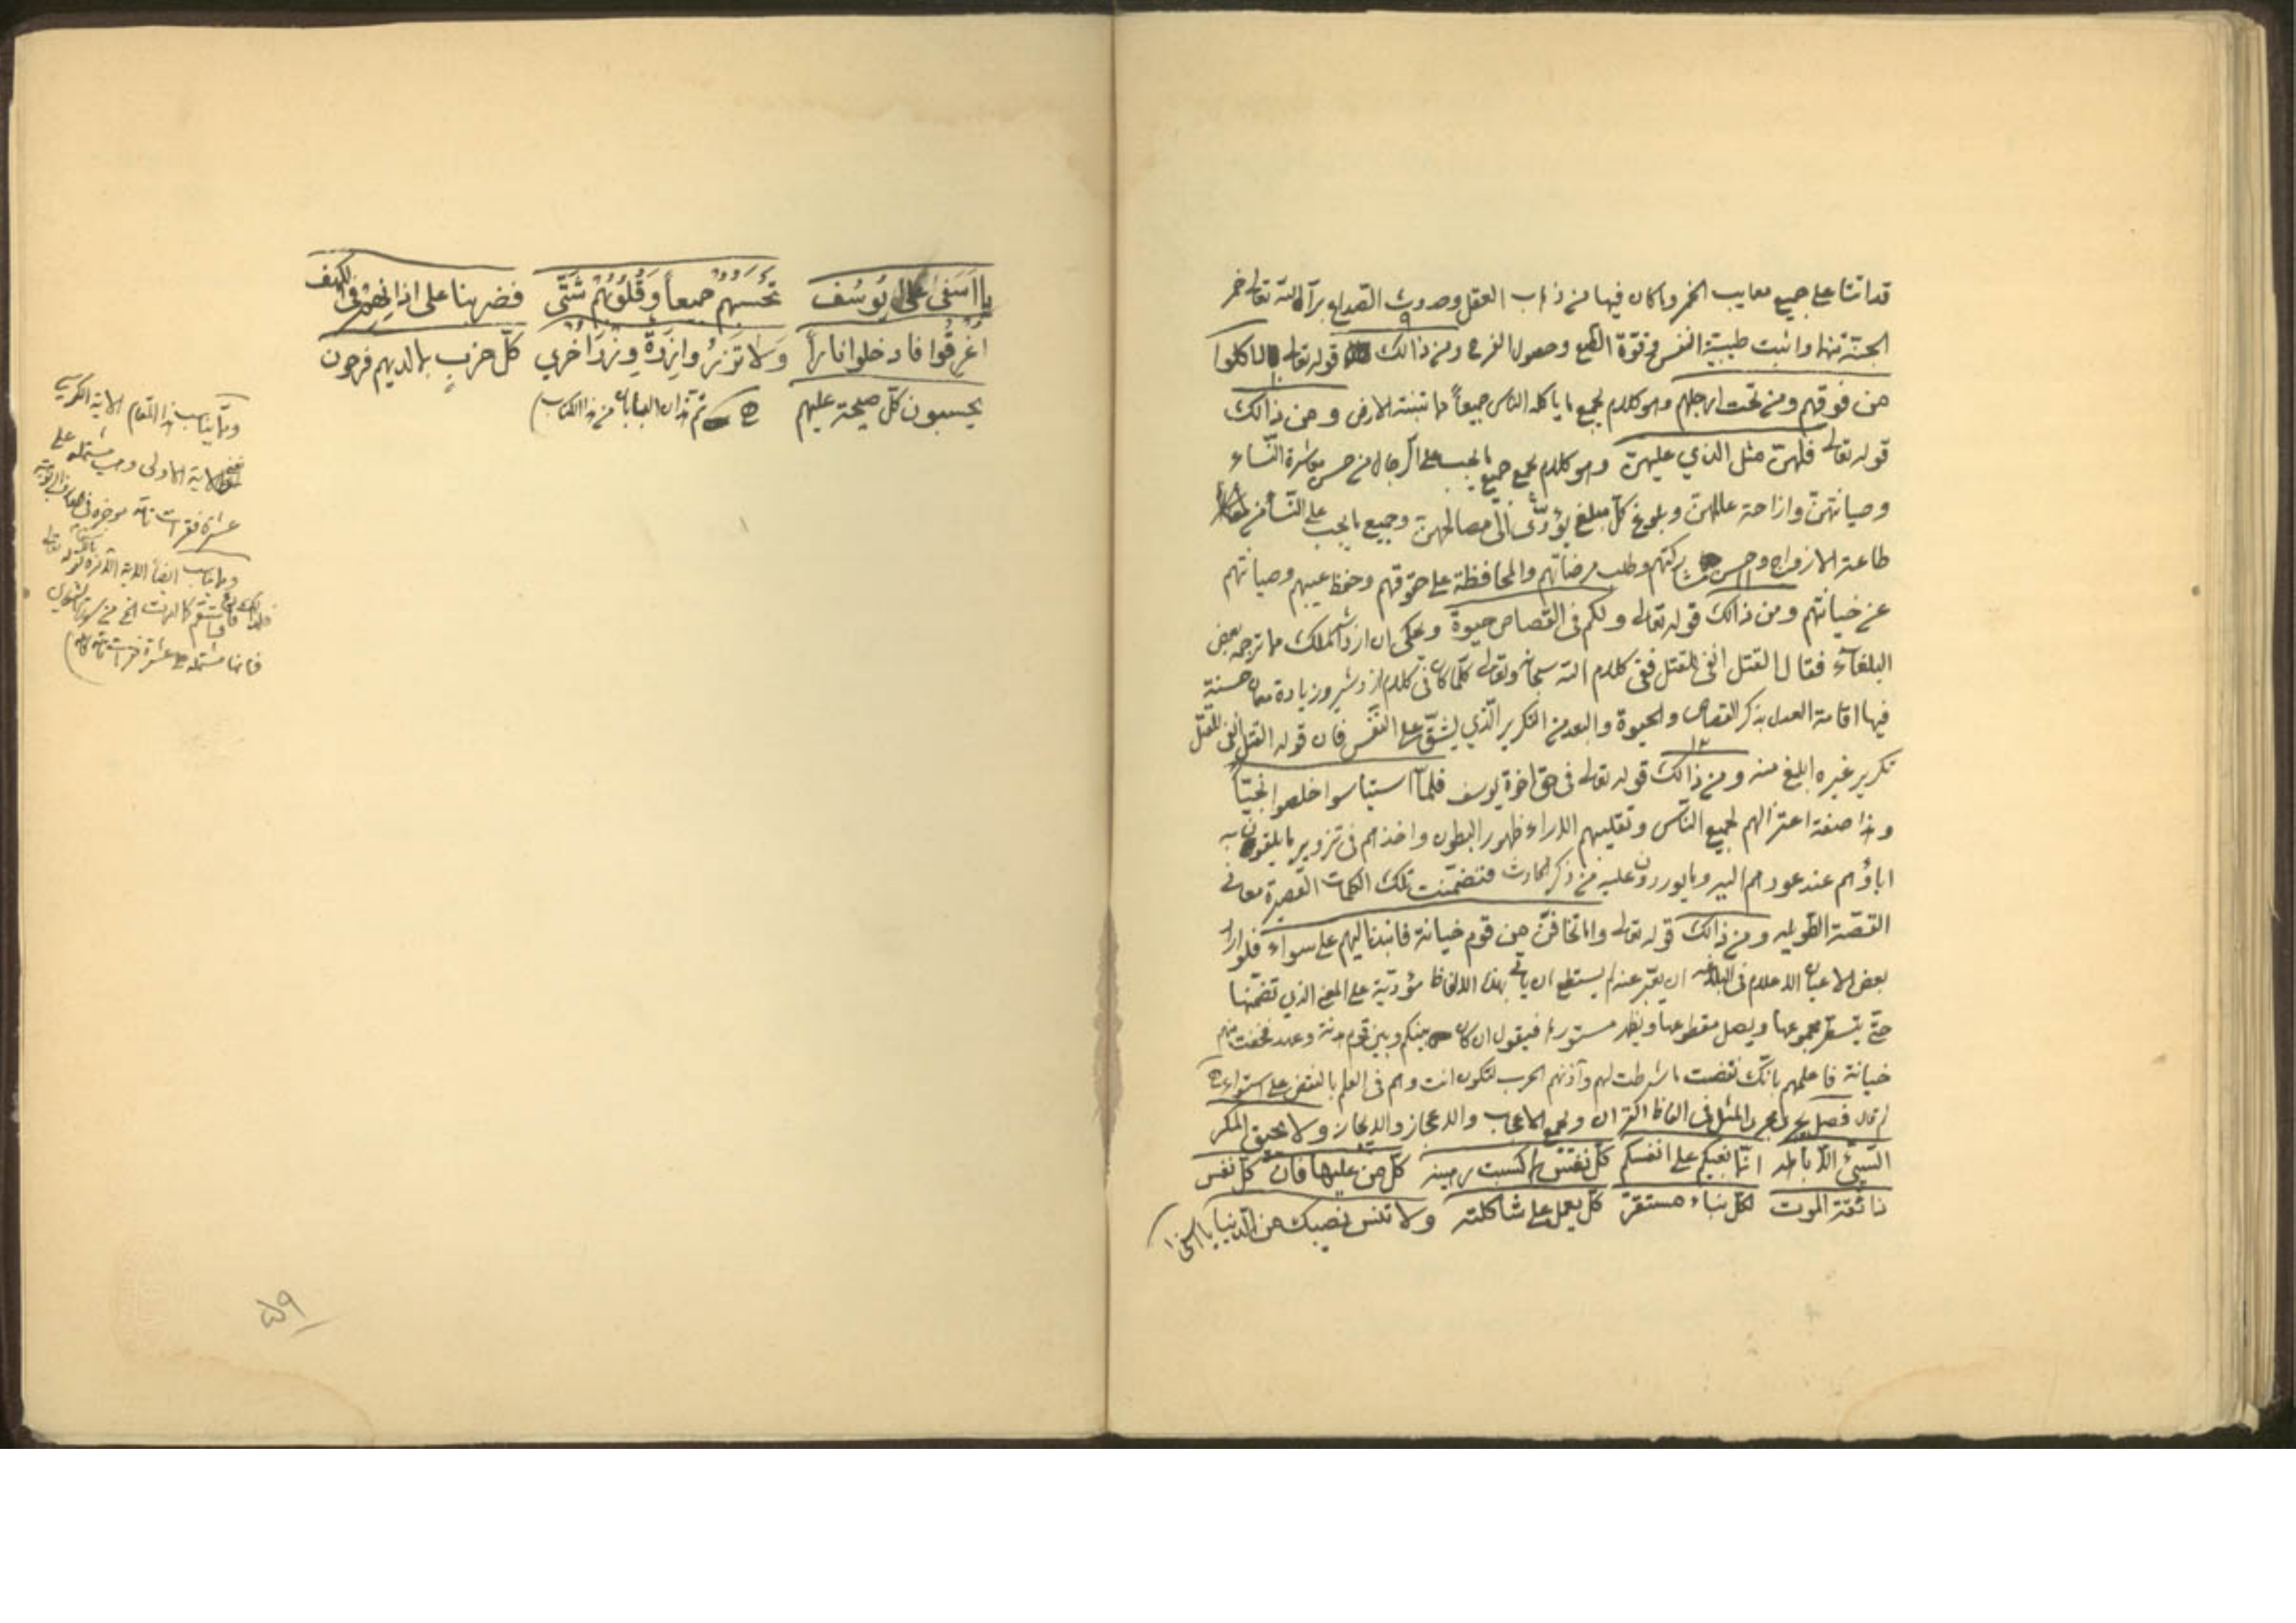 قد اتتا على جميع معايب الخمر وما كان فيها من ذهاب العقل وحدوث الصداع برآء الله تعالى خمر
الجنّة منها واثبت طيبة النفس وقوّة الطبع وحصول الفرح ومن ذالك ٩ قوله تعالى لاكلوا
من فوقهم ومن تحت ارجلهم وهو كلام يجمع ما ياكله الناس جميعاً مما تنبته الارض ومن ذالك ١٠
قوله تعالى فلهنّ مثل الذي عليهنّ وهو كلام يجمع جميع ما يجب على الرجال من حسن معاشرة النّساء
وصيانتهنّ وازاحة عللهنّ وبلوغ كلّ مبلغ يؤدّى الى مصالحهنّ وجميع ما يجب على النّساء من
طاعة الازواج وحسن مشاركتهم وطلب مرضاتهم والمحافظة على حقوقهم وحفظ غيبهم وصيانتهم
عن خيانتهم ومن ذالك ١١ قوله تعالى ولكم فى القصاص حيوة ويحكى ان اردشير الملك مما ترجمه بعض
البلغآء فقال القتل انفى للقتل ففى كلام الله سبحانه وتعالى كلّما كان فى كلام اردشير وزيادة معان حسنة
فيها اقامة العدل بذكر القصاص والحيوة والبعد من التكرير الّذي يشقّ على النّفس فان قوله القتل انفى للقتل
تكرير غيره ابلغ منه ومن ذالك ١٢ قوله تعالى فى حق اخوة يوسف فلمّا استياسوا خلصوا نجيّاً
وهذا صفة اعتزالهم لجميع الناس وتقليبهم الاراء ظهور البطون واخذهم فى تزوير ما يلقون به
اباؤهم عند عودهم اليه وما يوردون عليه من ذكر الحادث فتضمّنت تلك الكلمات القصيرة معانى
القصّة الطويله ومن ذالك قوله تعالى وامّا تخافنّ من قوم خيانة فانبذ اليهم على سوآء فلو اراد
بعض الاعيان الاعلام فى البلاغه ان يعبّر عنه لم يستطع ان ياتى بهذه الالفاظ مؤدّية على المعنى الذي تضمّنها
حتّى يبسط مجموعها ويصل مقطوعها ويظهر مستورها فيقول ان كان بينكم وبين قوم هدنة وعهد فخفت منهم
خيانة فاعلمهم بانّك نقضت ما شرطت لهم وآذنهم الحرب لتكون انت وهم فى العلم بالنقض على استواء
ثم قال فصل يجري مجرى المثل فى الفاظ القران ويجمع الاعجاب والاعجاز والايجاز ولا يحيق المكر
السّيّئ الّا باهله انّما بغيكم على انفسكم كلّ نفس بما كسبت رهينة كلّ من عليها فان كلّ نفس
ذائقة الموت لكلّ نباء مستقرّ كلّ يعمل على شاكلته ولا تنس نصيبك من الدّنيا يا اسفى
يا اسفى على يُوسُف تحسَبُهم جميعاً وَقُلُوبُهُم شَتّى فضربنا على اذانهم فى الكهف
اُغرِقُوا فادخلوا ناراً وَلا تَزِرُ وازِرَةٌ وِزرَ اُخرى كلّ حزب بما لديهم فرحون
يحسبون كلّ صيحة عليهم ثم هذان البابان من هذا الكتاب
وممّا يناسب هذا المقام الاية الكريمة
الاية الاولى وهي مشتملة على
عشرة فقرات تامّه
وممّا يناسب ايضاً
فلذالك فادع واستقم كما امرت الخ من سورة الشورى
فانها مشتملة على عشرة فقرات تامّة
٥٩